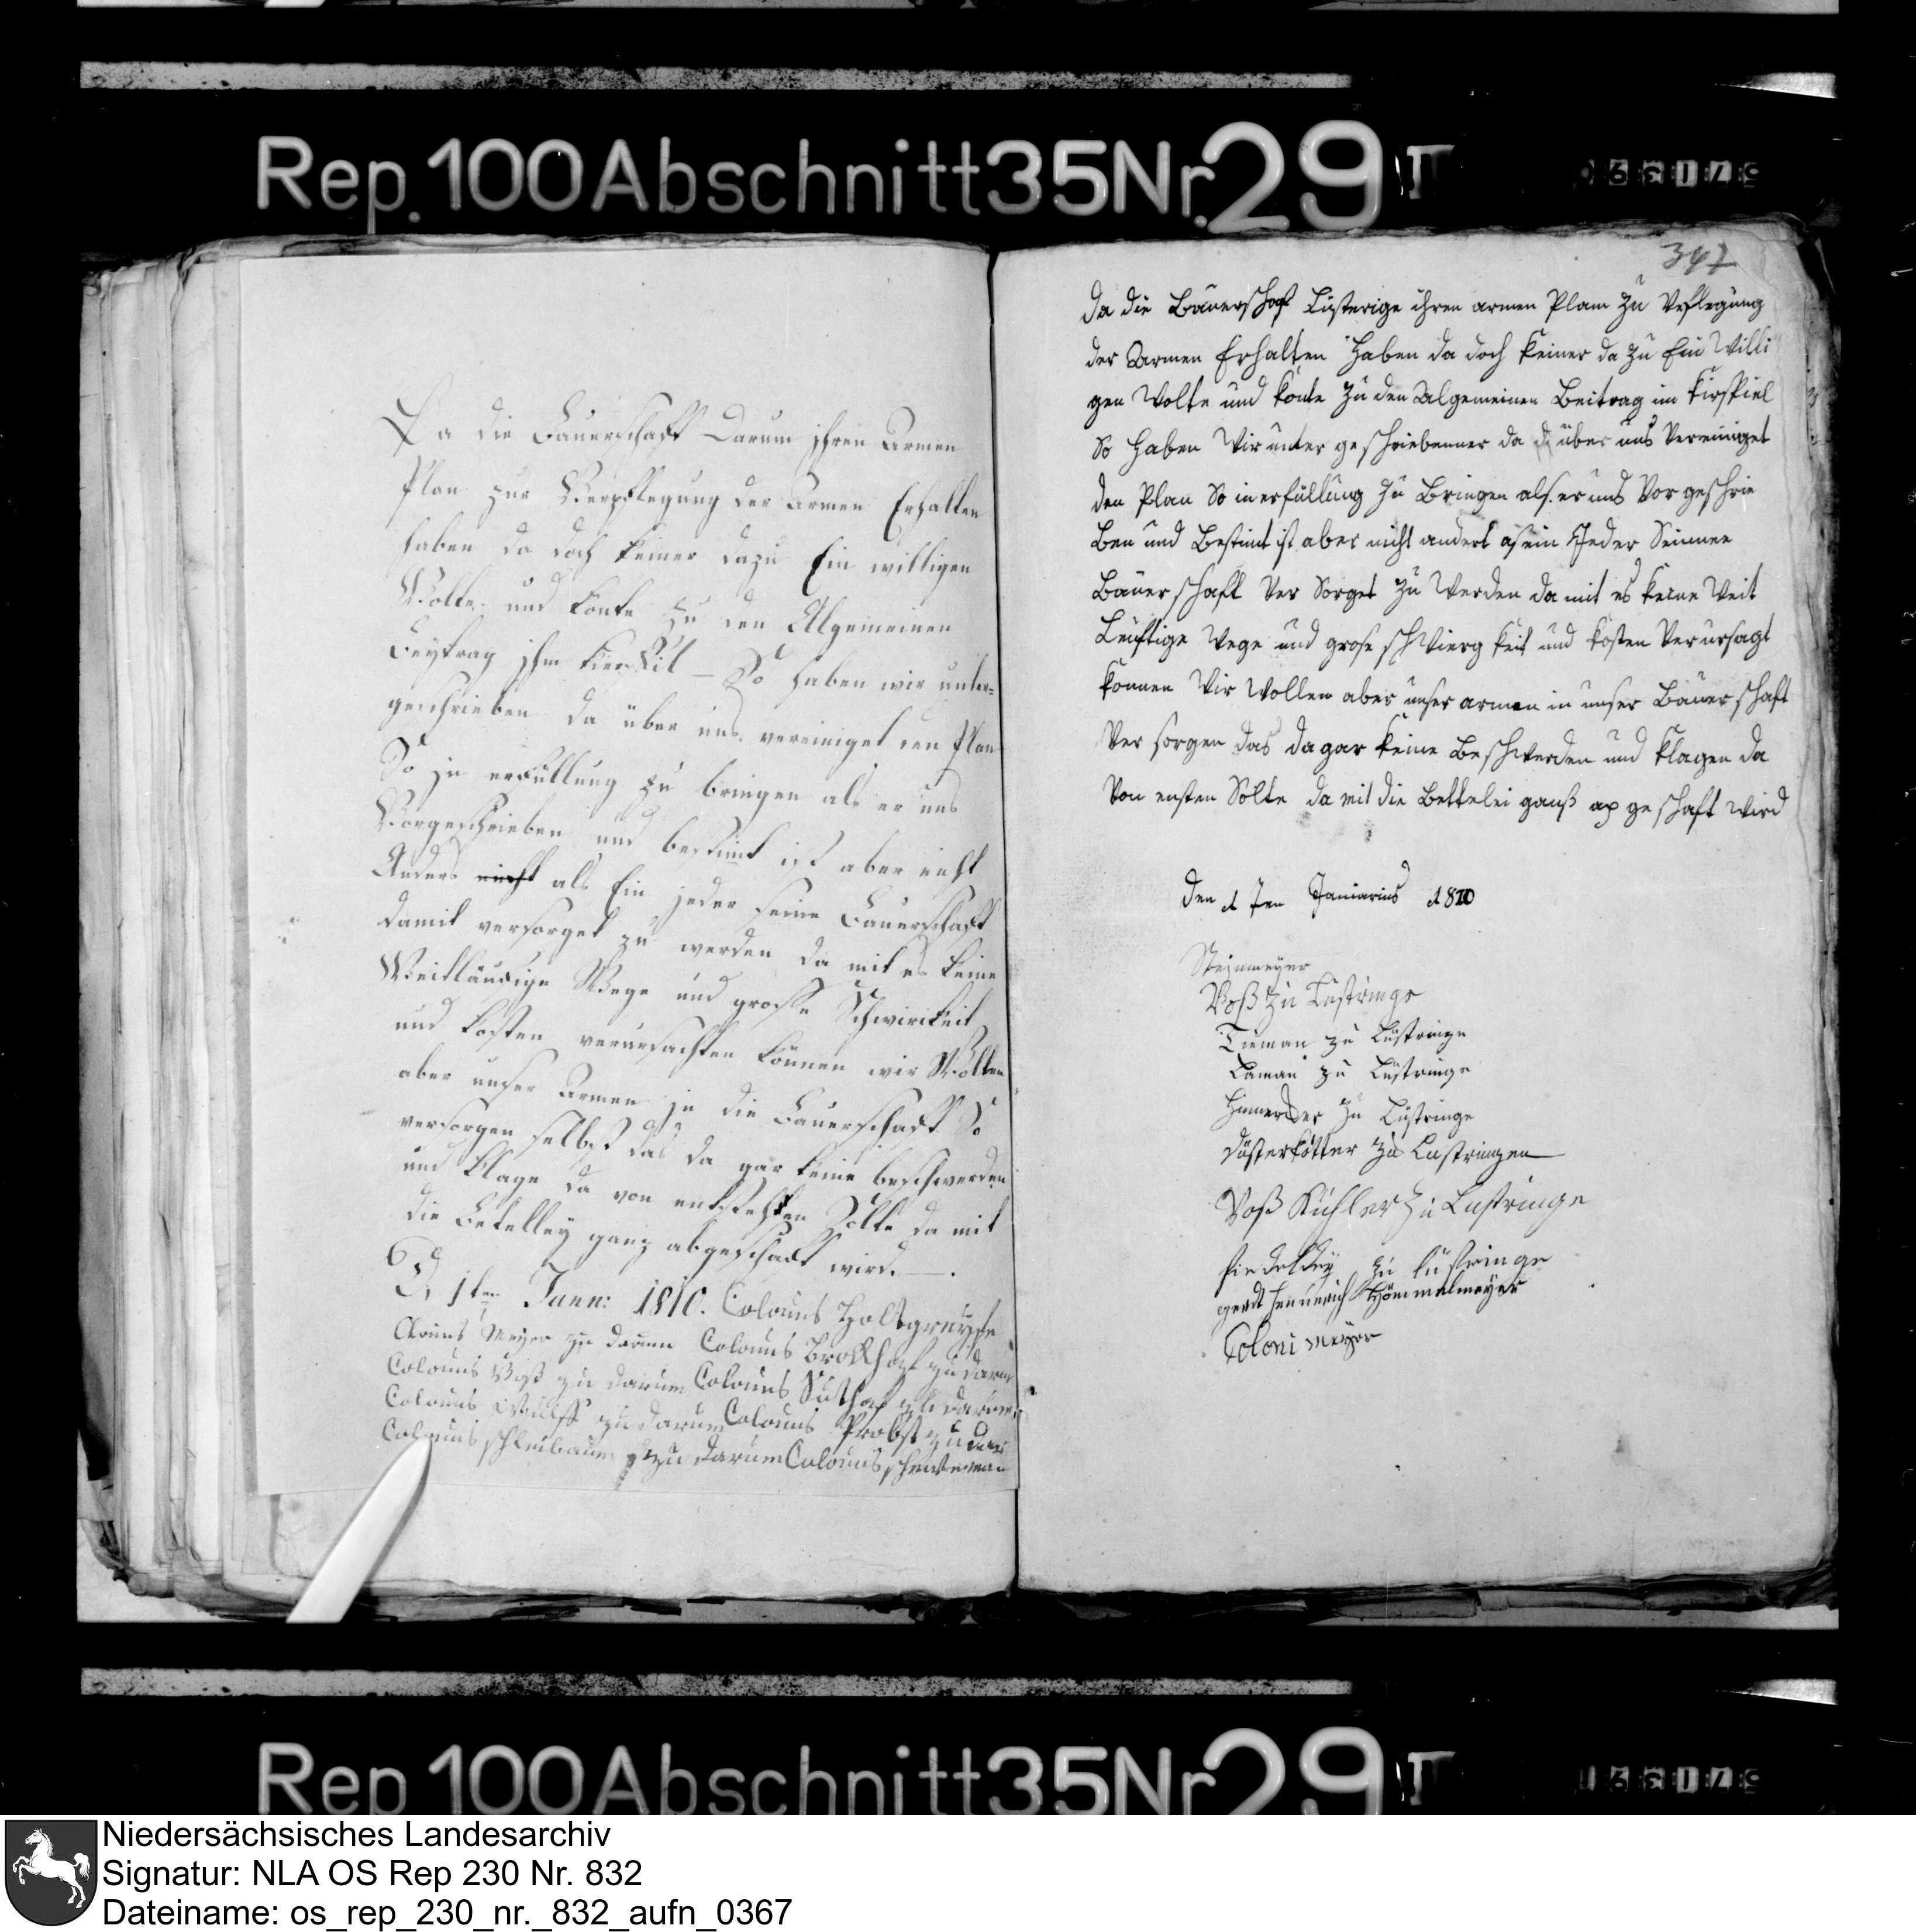 Rep. 100 Abschnitt 35 Nr. 29 II
Da die Bauerschaft Darum ihren Armen
Plan zur Verpflegung der Armen Erhalten
haben da doch keiner dazu Ein willigen
Wolte und konte zu den Algemeinen
Beytrag ihm Kierspil – So haben wir unter-
geschrieben da über uns vereiniget den Plan
So in erfüllung zu bringen als er uns
Vorgeschrieben und bestimt ist aber nicht
Anders nicht als Ein jeder seine Bauerschaft
damit versorget zu werden da mit es keine
Weitläufige Wege und grosse Schwirikeit
und kosten verursachten können wir Wollen
aber unser Armen in die Bauerschaft So
versorgen selbst das da gar keine beschwerden
und klage da von entstehten Solte da mit
die Bettelley ganz abgeschaft wird. —.
D 1ten Jann: 1810. Colonus Holtgreyfe
Meyer zu darum Colonus Brockhof zu darum
Colonus Voß zu darum Colonus Suthof zu darum
Colonus Wulff zu darum Colonus Probst zu dar
Colonus schleibaum zu darum Colonus
347
da die Bauerschaft Lüsterige ihren armen Plam zu Vpflegung
der Armen Erhalten Haben da doch keiner da zu Ein Willi
gen Wolte und konte zu den Algemeinen Beitrag im kirspiel
So Haben Wir unter geschriebenner da über uns Vereiniget
den Plan So in erfüllung zu Bringen als er uns Vor geschrie
Ben und Bestimt ist aber nicht anders asein Jeder Seinnee
Bauerschaft Ver Sorget zu Werden da mit es keine Weit
Leuftige Wege und grose schwierg keit und kosten Verursagt
konnen Wir Wollen aber unser armen in unser Bauerschaft
Ver sorgen das da gar keine Beschwerden und klagen da
Von ensten Solte da mit die Bettelei ganß ap geschaft wird
den 17en Janiarius 1810
Steinmeyer
Voß zu Lüstringe
Tieman zu Lüstringe
Laman zu Lüstringe
zu Lüstringe
Düsterkötter zu Lustringen
Voß Küchler zu Lustringe
zu lüstringe
gerdt hennerich Hömmelmeyer
Coloni Meyer
Rep. 100 Abschnitt 35 Nr. 29 II
Niedersächsisches Landesarchiv
Signatur: NLA OS Rep 230 Nr. 832
Dateiname: os_rep_230_nr._832_aufn_0367